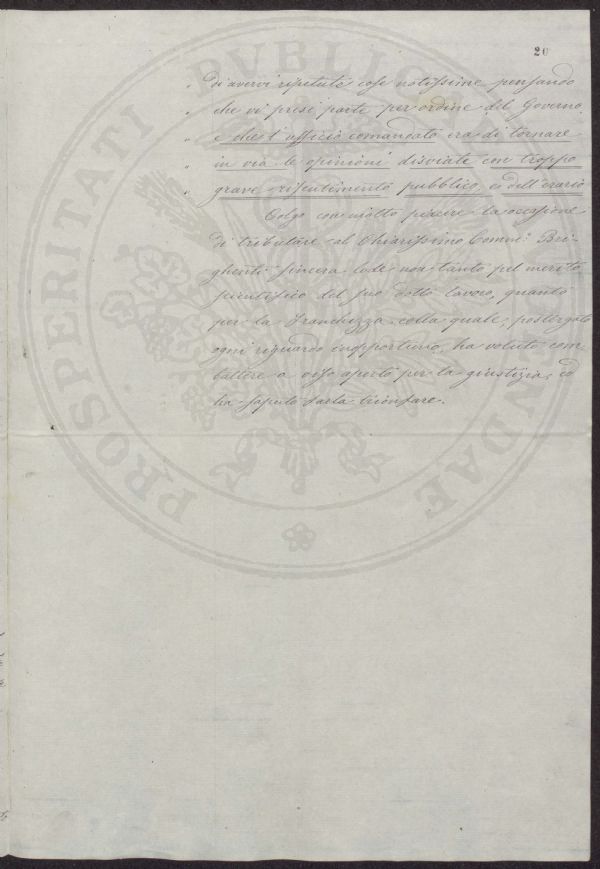 20
" di avervi ripetuto cose notissime pensando
" che vi presi parte per ordine del Governo,
" e che l'ufficio comandato era di tornare
" in via le opinioni disviate con troppo
" grave risentimento pubblico, e dell'erario
Colgo con molto piacere la occasione
di tributare al Chiarissimo Comm.e Bri-
ghenti sincera lode non tanto pel merito
scientifico del suo dotto lavoro, quanto
per la franchezza colla quale, postergato
ogni riguardo inopportuno, ha voluto com
battere a viso aperto per la giustizia, ed
ha saputo farla trionfare.
PROSPERITATI PVBLIC NDAE